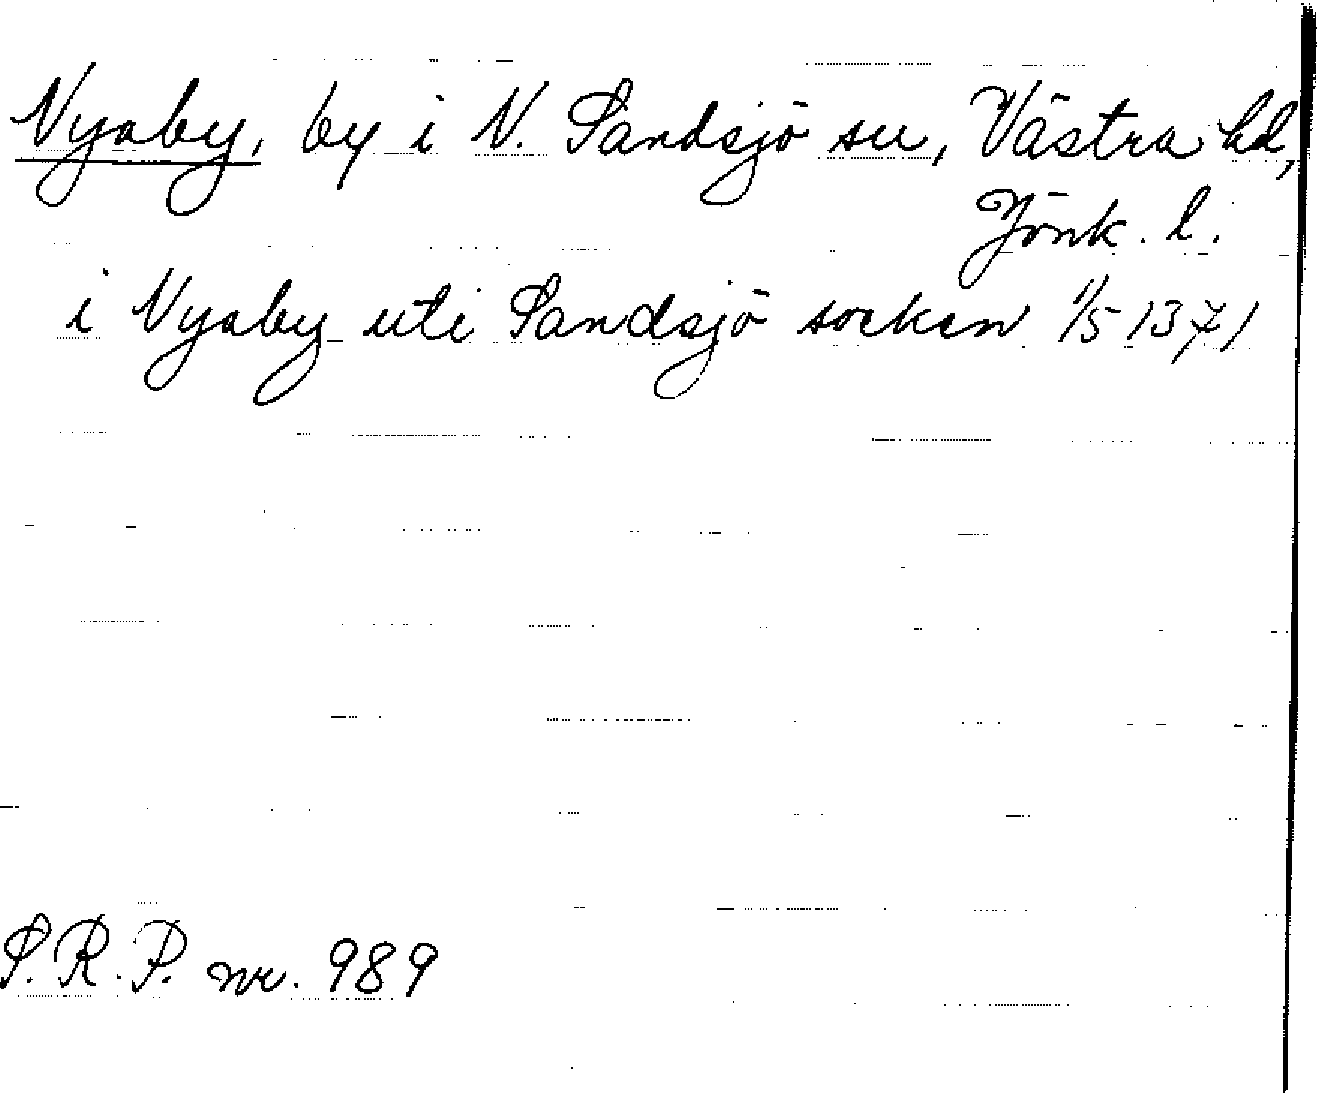 Nyaby, by i N. Sandsjö sn, Västra hd,
Jönk. l.
i Nyaby uti Sandsjö socken 1/5 1371
S.R.P. nr. 989